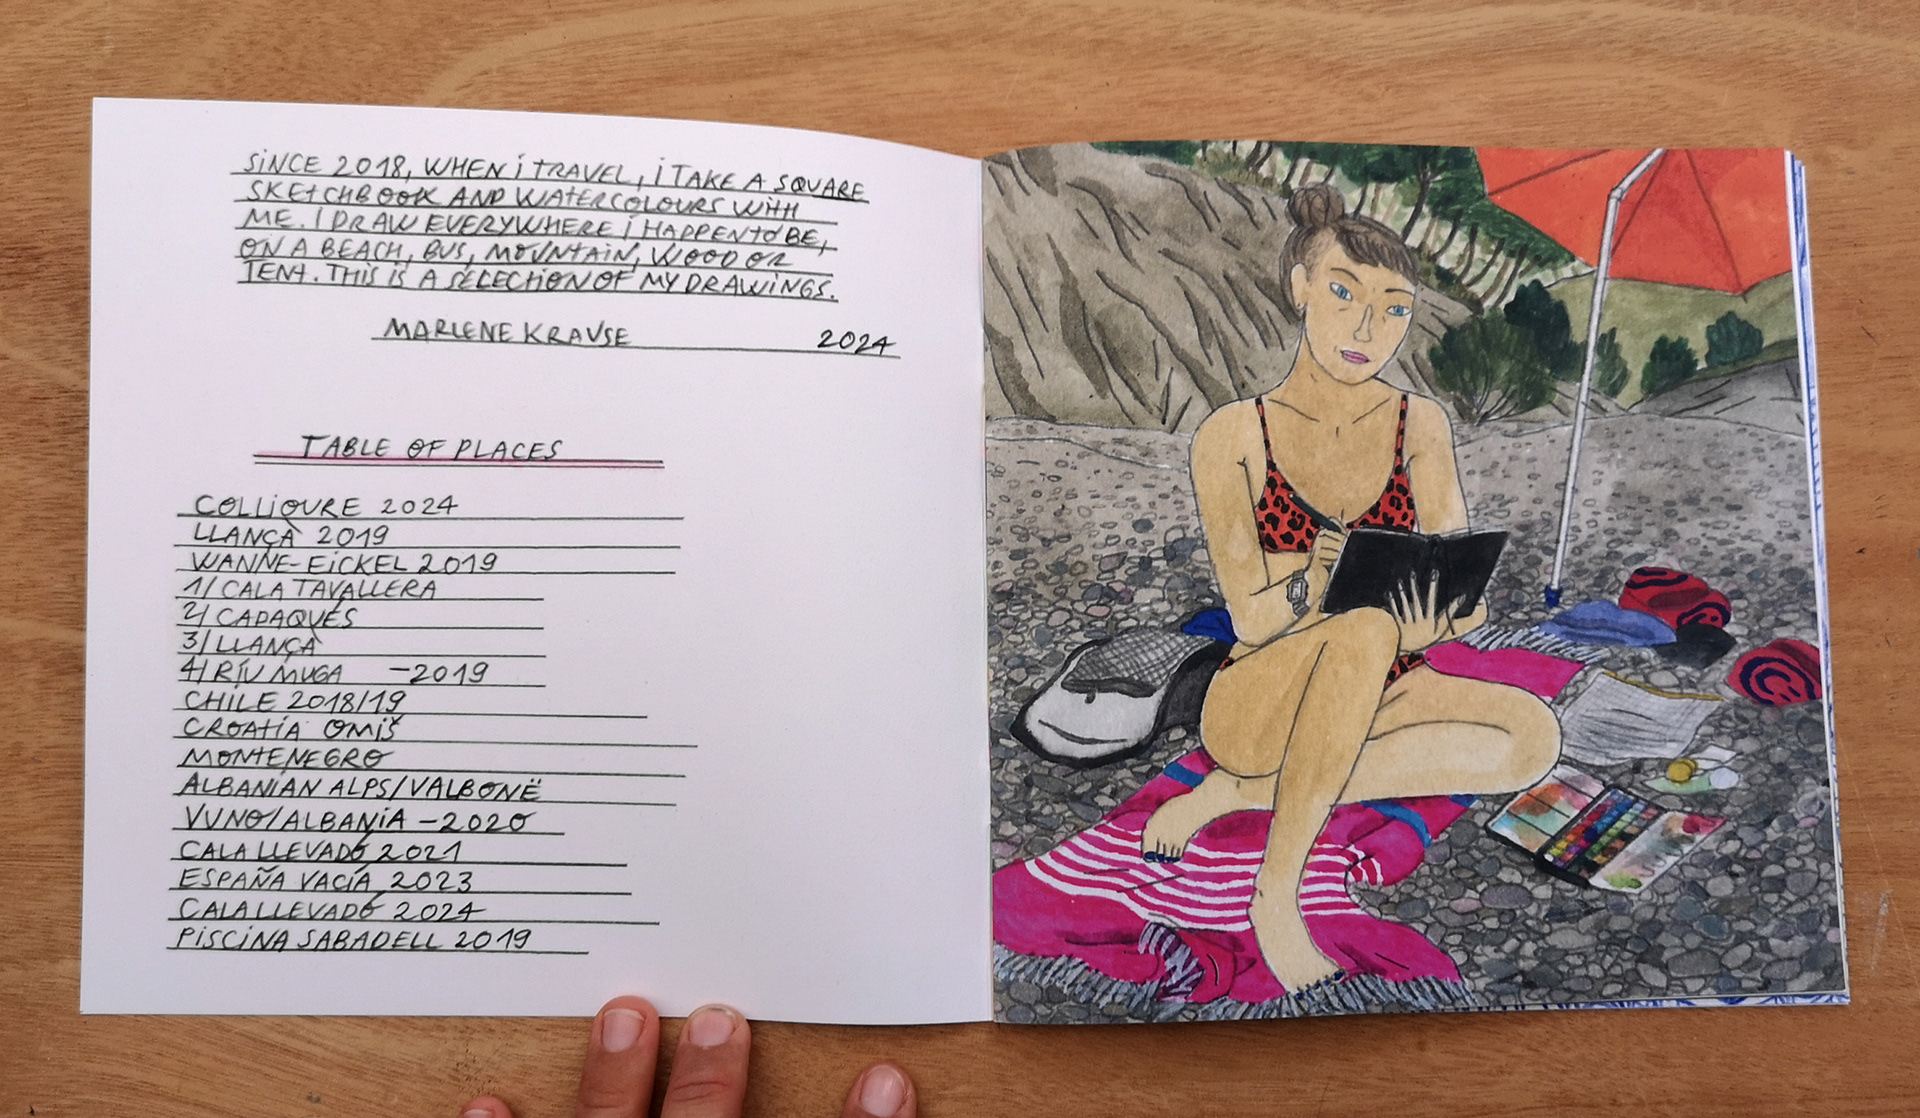 SINCE 2018, WHEN i TRAVEL, i TAKE A SQUARE
SKETCHBOOK AND WATERCOLOURS WITH
ME. I DRAW EVERYWHERE i HAPPEN TO BE,
ON A BEACH, BUS, MOUNTAIN, WOOD OR
TENT. THIS iS A SELECTION OF MY DRAWINGS.
MARLENE KRAUSE 2024
TABLE OF PLACES
COLLIOURE 2024
LLANÇÀ 2019
WANNE-EICKEL 2019
1/ CALA TAVALLERA
2/ CADAQUÉS
3/ LLANÇÀ
4/ RÍU MUGA -2019
CHILE 2018/19
CROATIA OMIŠ
MONTENEGRO
ALBANIAN ALPS/VALBONË
VUNO/ALBANIA -2020
CALA LLEVADÓ 2021
ESPAÑA VACÍA 2023
CALA LLEVADÓ 2024
PISCINA SABADELL 2019